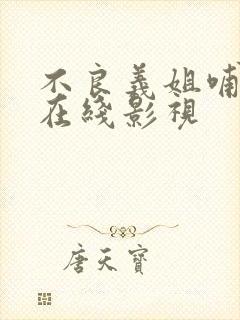 不良義姐哺
在綫影視
唐天寶